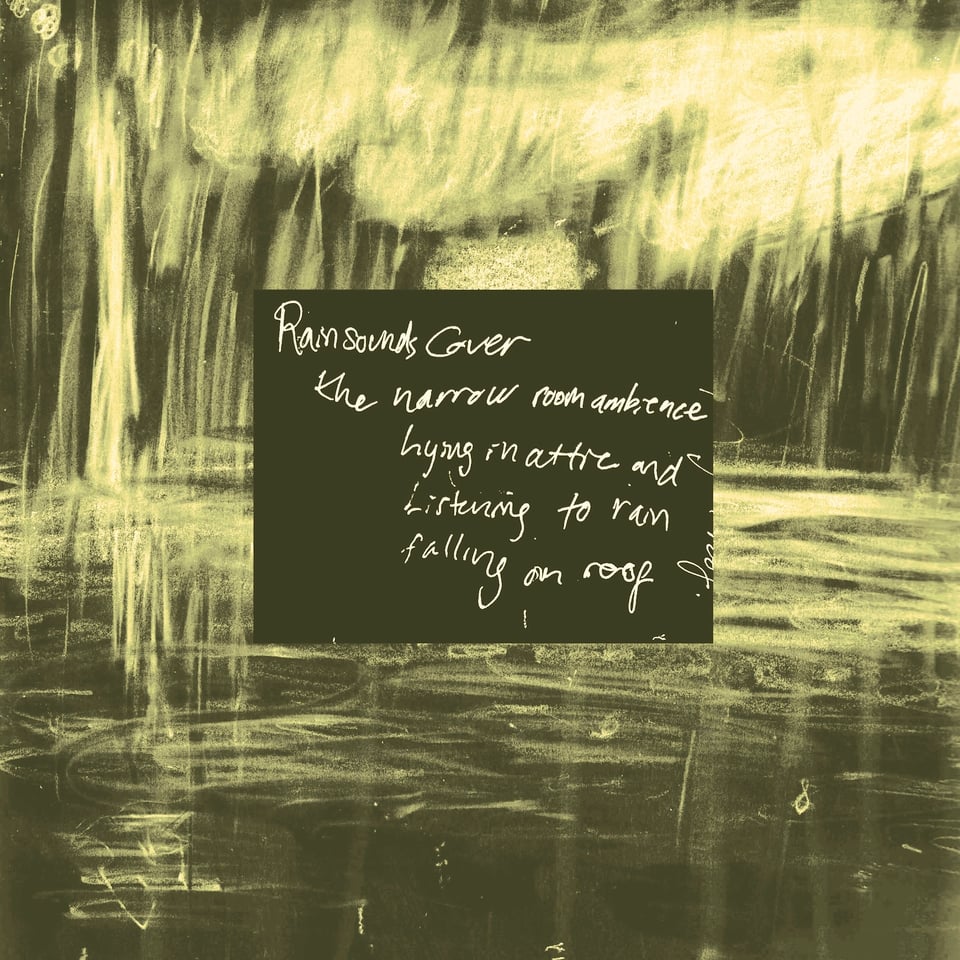 Rain sounds Cover
the narrow room ambience
Lying in attic and
Listening to rain
falling on roof